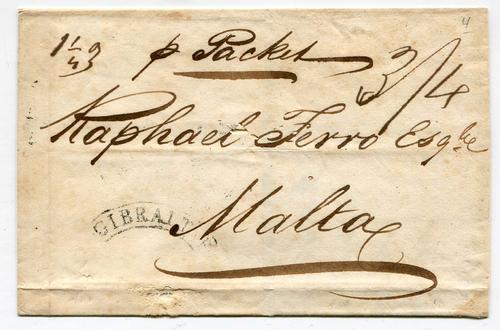 4
p Packet
3/4
Raphael Ferro Esqre
Malta
GIBRALTAR